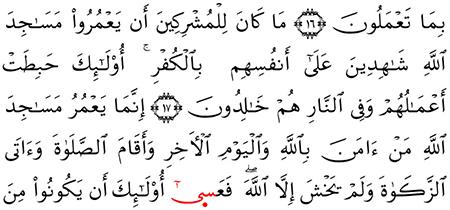 بِمَا تَعْمَلُونَ ۝١٦ مَا كَانَ لِلْمُشْرِكِينَ أَن يَعْمُرُوا۟ مَسَـٰجِدَ
ٱللَّهِ شَـٰهِدِينَ عَلَىٰٓ أَنفُسِهِم بِٱلْكُفْرِ ۚ أُو۟لَـٰٓئِكَ حَبِطَتْ
أَعْمَـٰلُهُمْ وَفِى ٱلنَّارِ هُمْ خَـٰلِدُونَ ۝١٧ إِنَّمَا يَعْمُرُ مَسَـٰجِدَ
ٱللَّهِ مَنْ ءَامَنَ بِٱللَّهِ وَٱلْيَوْمِ ٱلْـَٔاخِرِ وَأَقَامَ ٱلصَّلَوٰةَ وَءَاتَى
ٱلزَّكَوٰةَ وَلَمْ يَخْشَ إِلَّا ٱللَّهَ ۖ فَعَسَىٰٓ أُو۟لَـٰٓئِكَ أَن يَكُونُوا۟ مِنَ